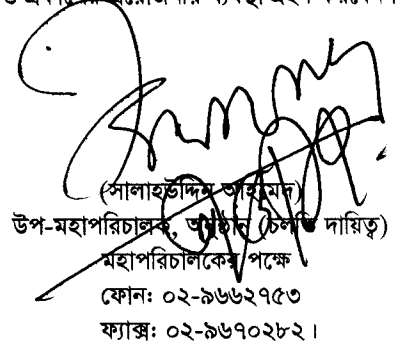 (সালাহউদ্দিন আহাম্মদ)
উপ-মহাপরিচালক, অনুষ্ঠান (চলতি দায়িত্ব)
মহাপরিচালকের পক্ষে
ফোন: ০২-৯৬৬২৭৫৩
ফ্যাক্স: ০২-৯৬৭০২৮২।